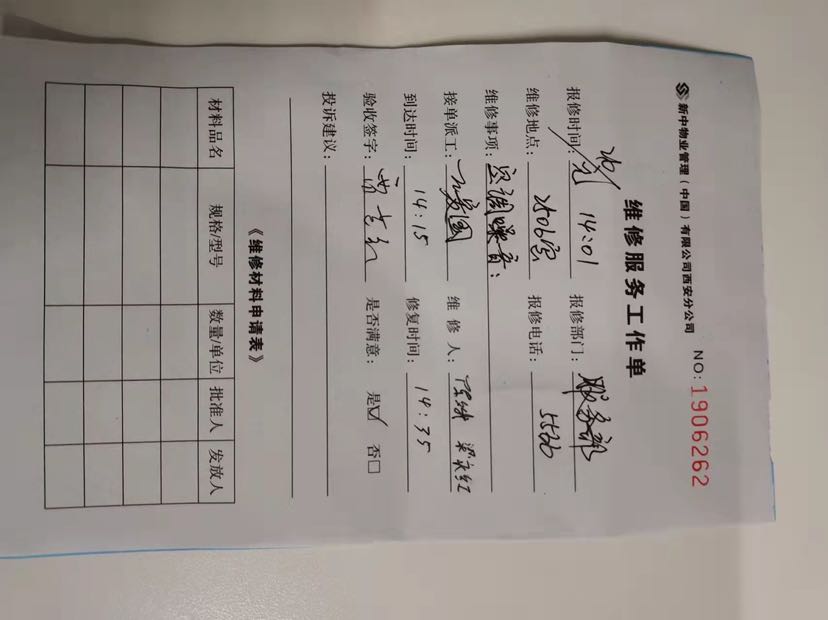 新中物业管理（中国）有限公司西安分公司
NO:1906262
维修服务工作单
报修时间: 14:01 报修部门: 服务部
维修地点: 2506室 报修电话: 5526
维修事项: 空调噪音:
接单派工: 维 修 人:
到达时间: 14:15 修复时间: 14:35
验收签字: 是否满意: 是☑ 否□
投诉建议:
《维修材料申请表》
材料品名 规格/型号 数量/单位 批准人 发放人